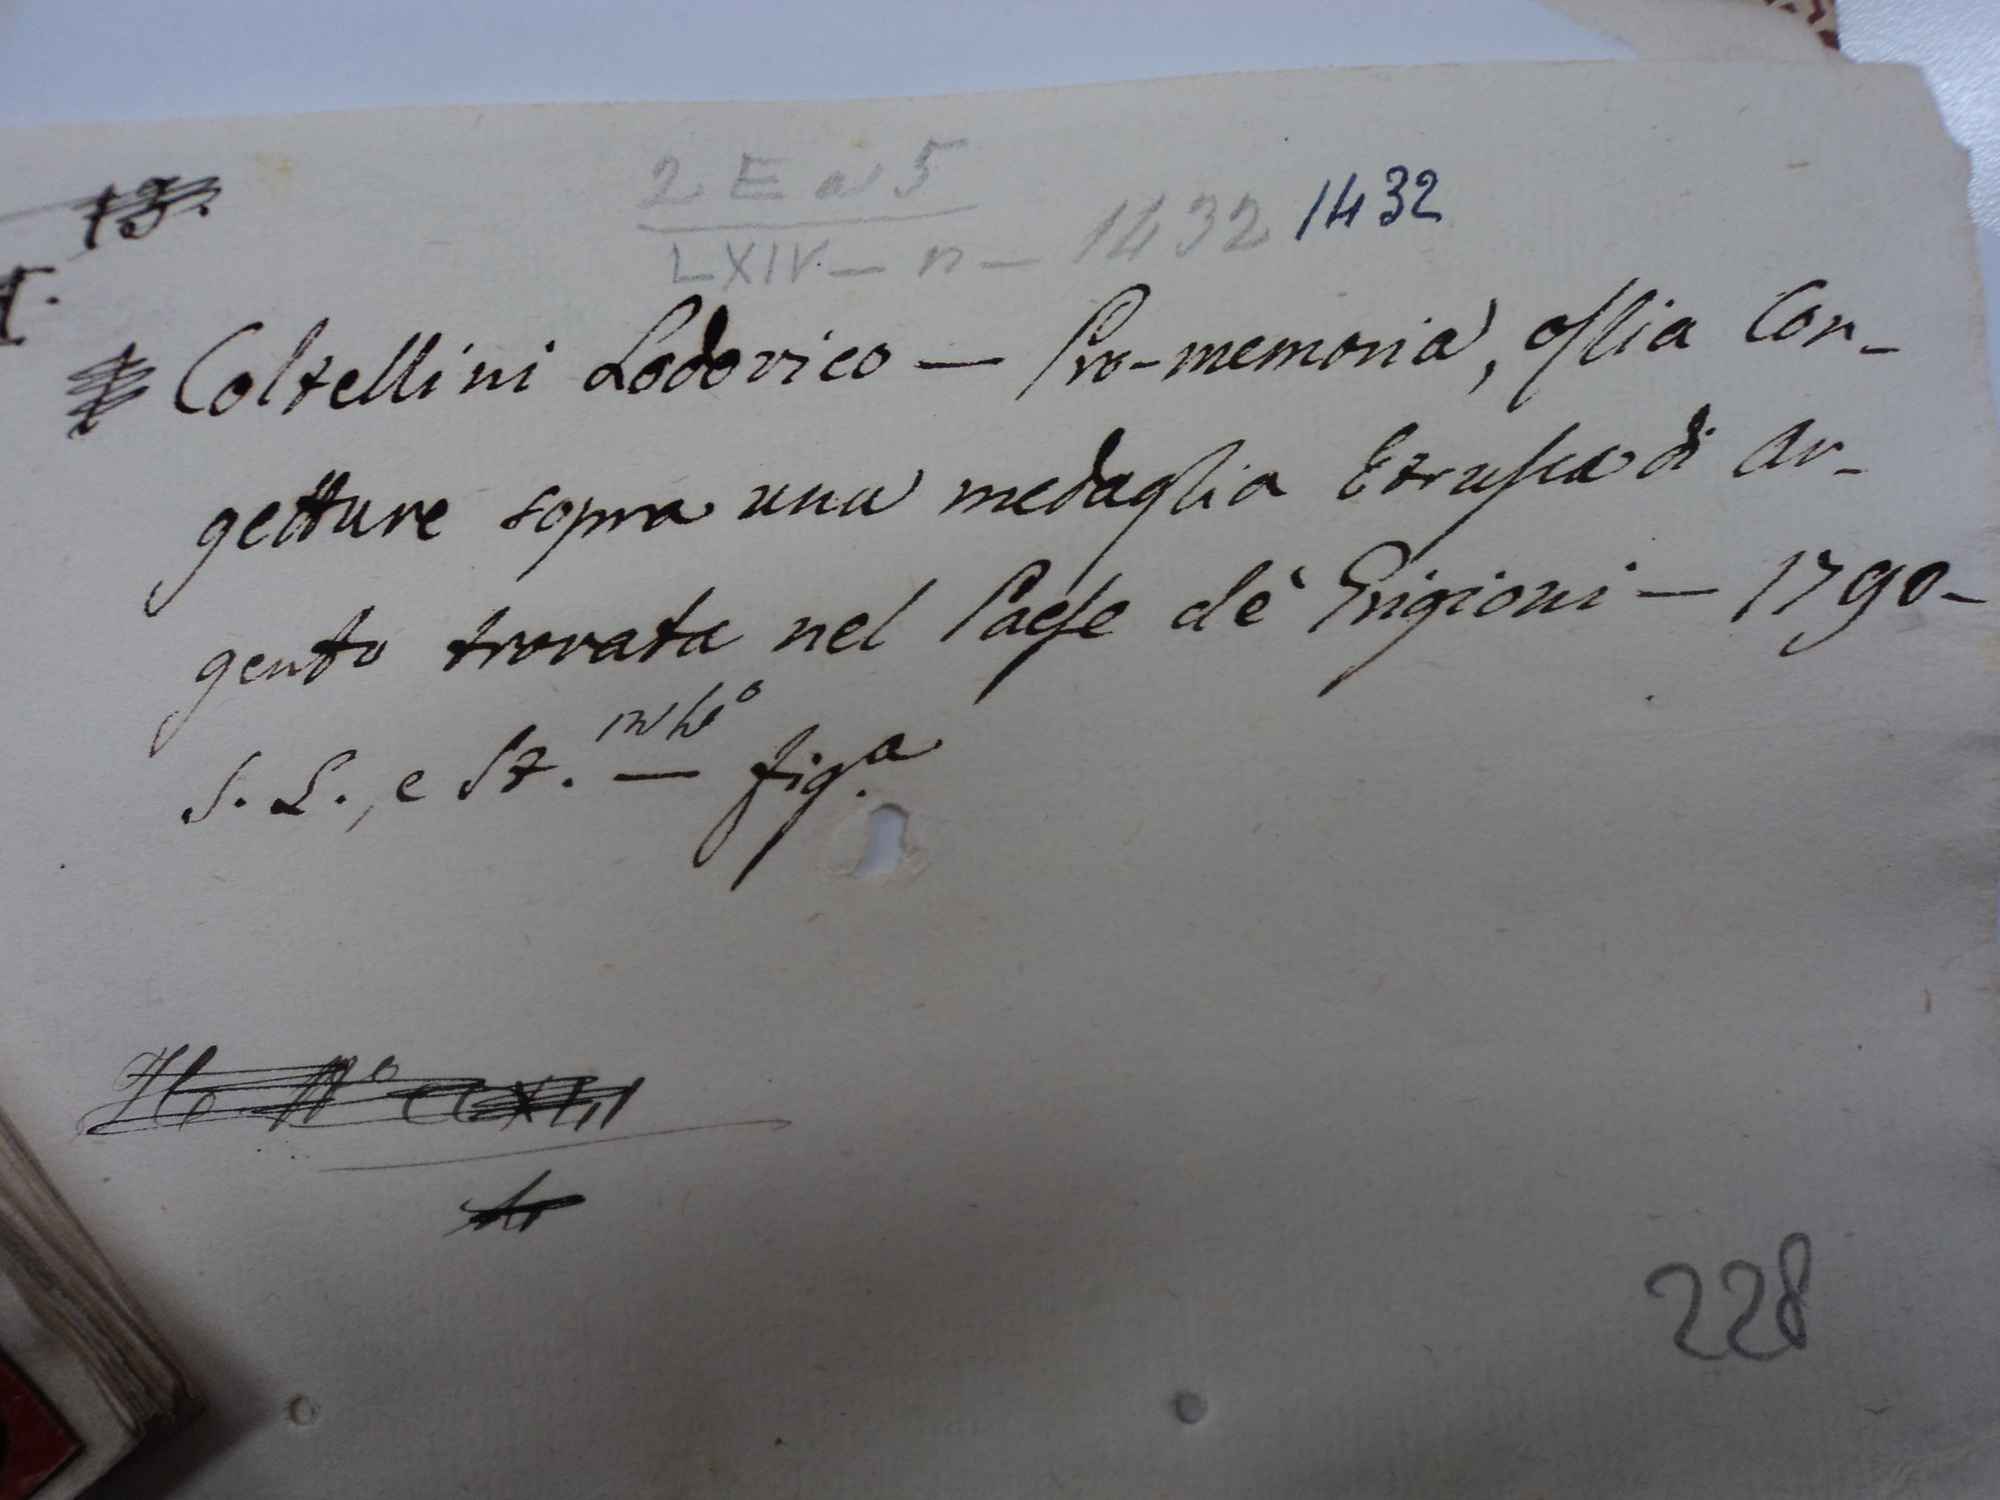 13.
2 E a 5
LXIV - n - 1432 1432
Coltellini Lodovico — Pro-memoria, ossia Con-
getture sopra una medaglia Etrusca di ar-
gento trovata nel Paese de' Grigioni — 1790-
in fo°
S. L., e St. — fig.a
N° CCXIII
228